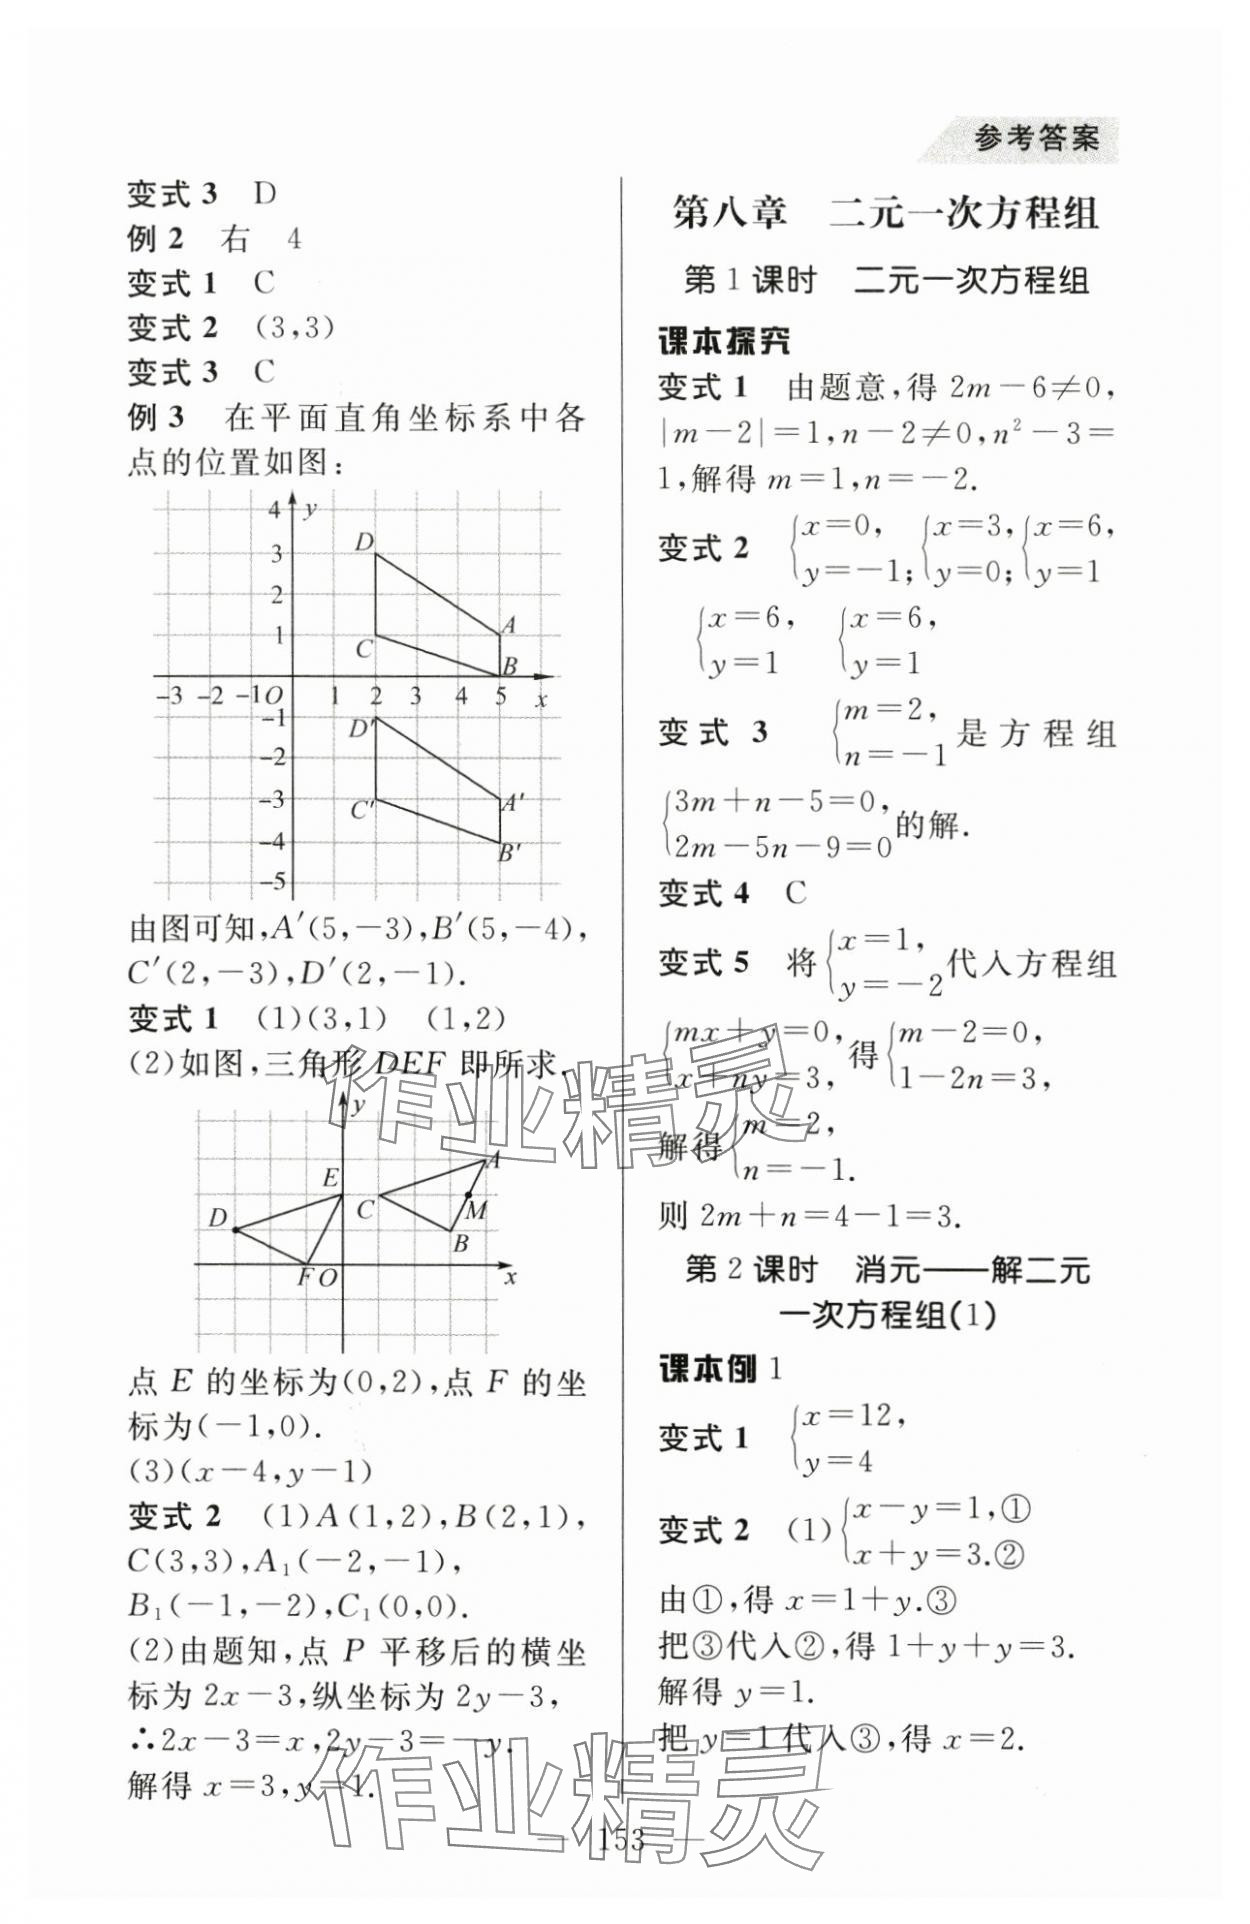 参考答案
变式 3　D
例 2　右　4
变式 1　C
变式 2　(3,3)
变式 3　C
例 3　在平面直角坐标系中各
点的位置如图:
4 y
D
3
2
1
A
C
B
-3 -2 -1 O 1 2 3 4 5 x
-1
D′
-2
-3
A′
C′
-4
B′
-5
由图可知,A′(5,-3),B′(5,-4),
C′(2,-3),D′(2,-1).
变式 1　(1)(3,1)　(1,2)
(2)如图,三角形 DEF 即所求.
y
A
E
D
C
M
B
F O x
点 E 的坐标为(0,2),点 F 的坐
标为(-1,0).
(3)(x-4,y-1)
变式 2　(1)A(1,2),B(2,1),
C(3,3),A₁(-2,-1),
B₁(-1,-2),C₁(0,0).
(2)由题知,点 P 平移后的横坐
标为 2x-3,纵坐标为 2y-3,
∴2x-3=x,2y-3=-y.
解得 x=3,y=1.
第八章　二元一次方程组
第 1 课时　二元一次方程组
课本探究
变式 1　由题意,得 2m-6≠0,
|m-2|=1,n-2≠0,n²-3=
1,解得 m=1,n=-2.
变式 2　{x=0, {x=3, {x=6,
y=-1; y=0; y=1
{x=6, {x=6,
y=1 y=1
变式 3　{m=2, n=-1 是方程组
{3m+n-5=0,
2m-5n-9=0 的解.
变式 4　C
变式 5　将{x=1, y=-2 代入方程组
{mx+y=0, x+ny=3, 得{m-2=0, 1-2n=3,
解得{m=2, n=-1.
则 2m+n=4-1=3.
第 2 课时　消元——解二元
一次方程组(1)
课本例 1
变式 1　{x=12,
y=4
变式 2　(1){x-y=1,①
x+y=3.②
由①,得 x=1+y.③
把③代入②,得 1+y+y=3.
解得 y=1.
把 y=1 代入③,得 x=2.
— 153 —
作业精灵
作业精灵